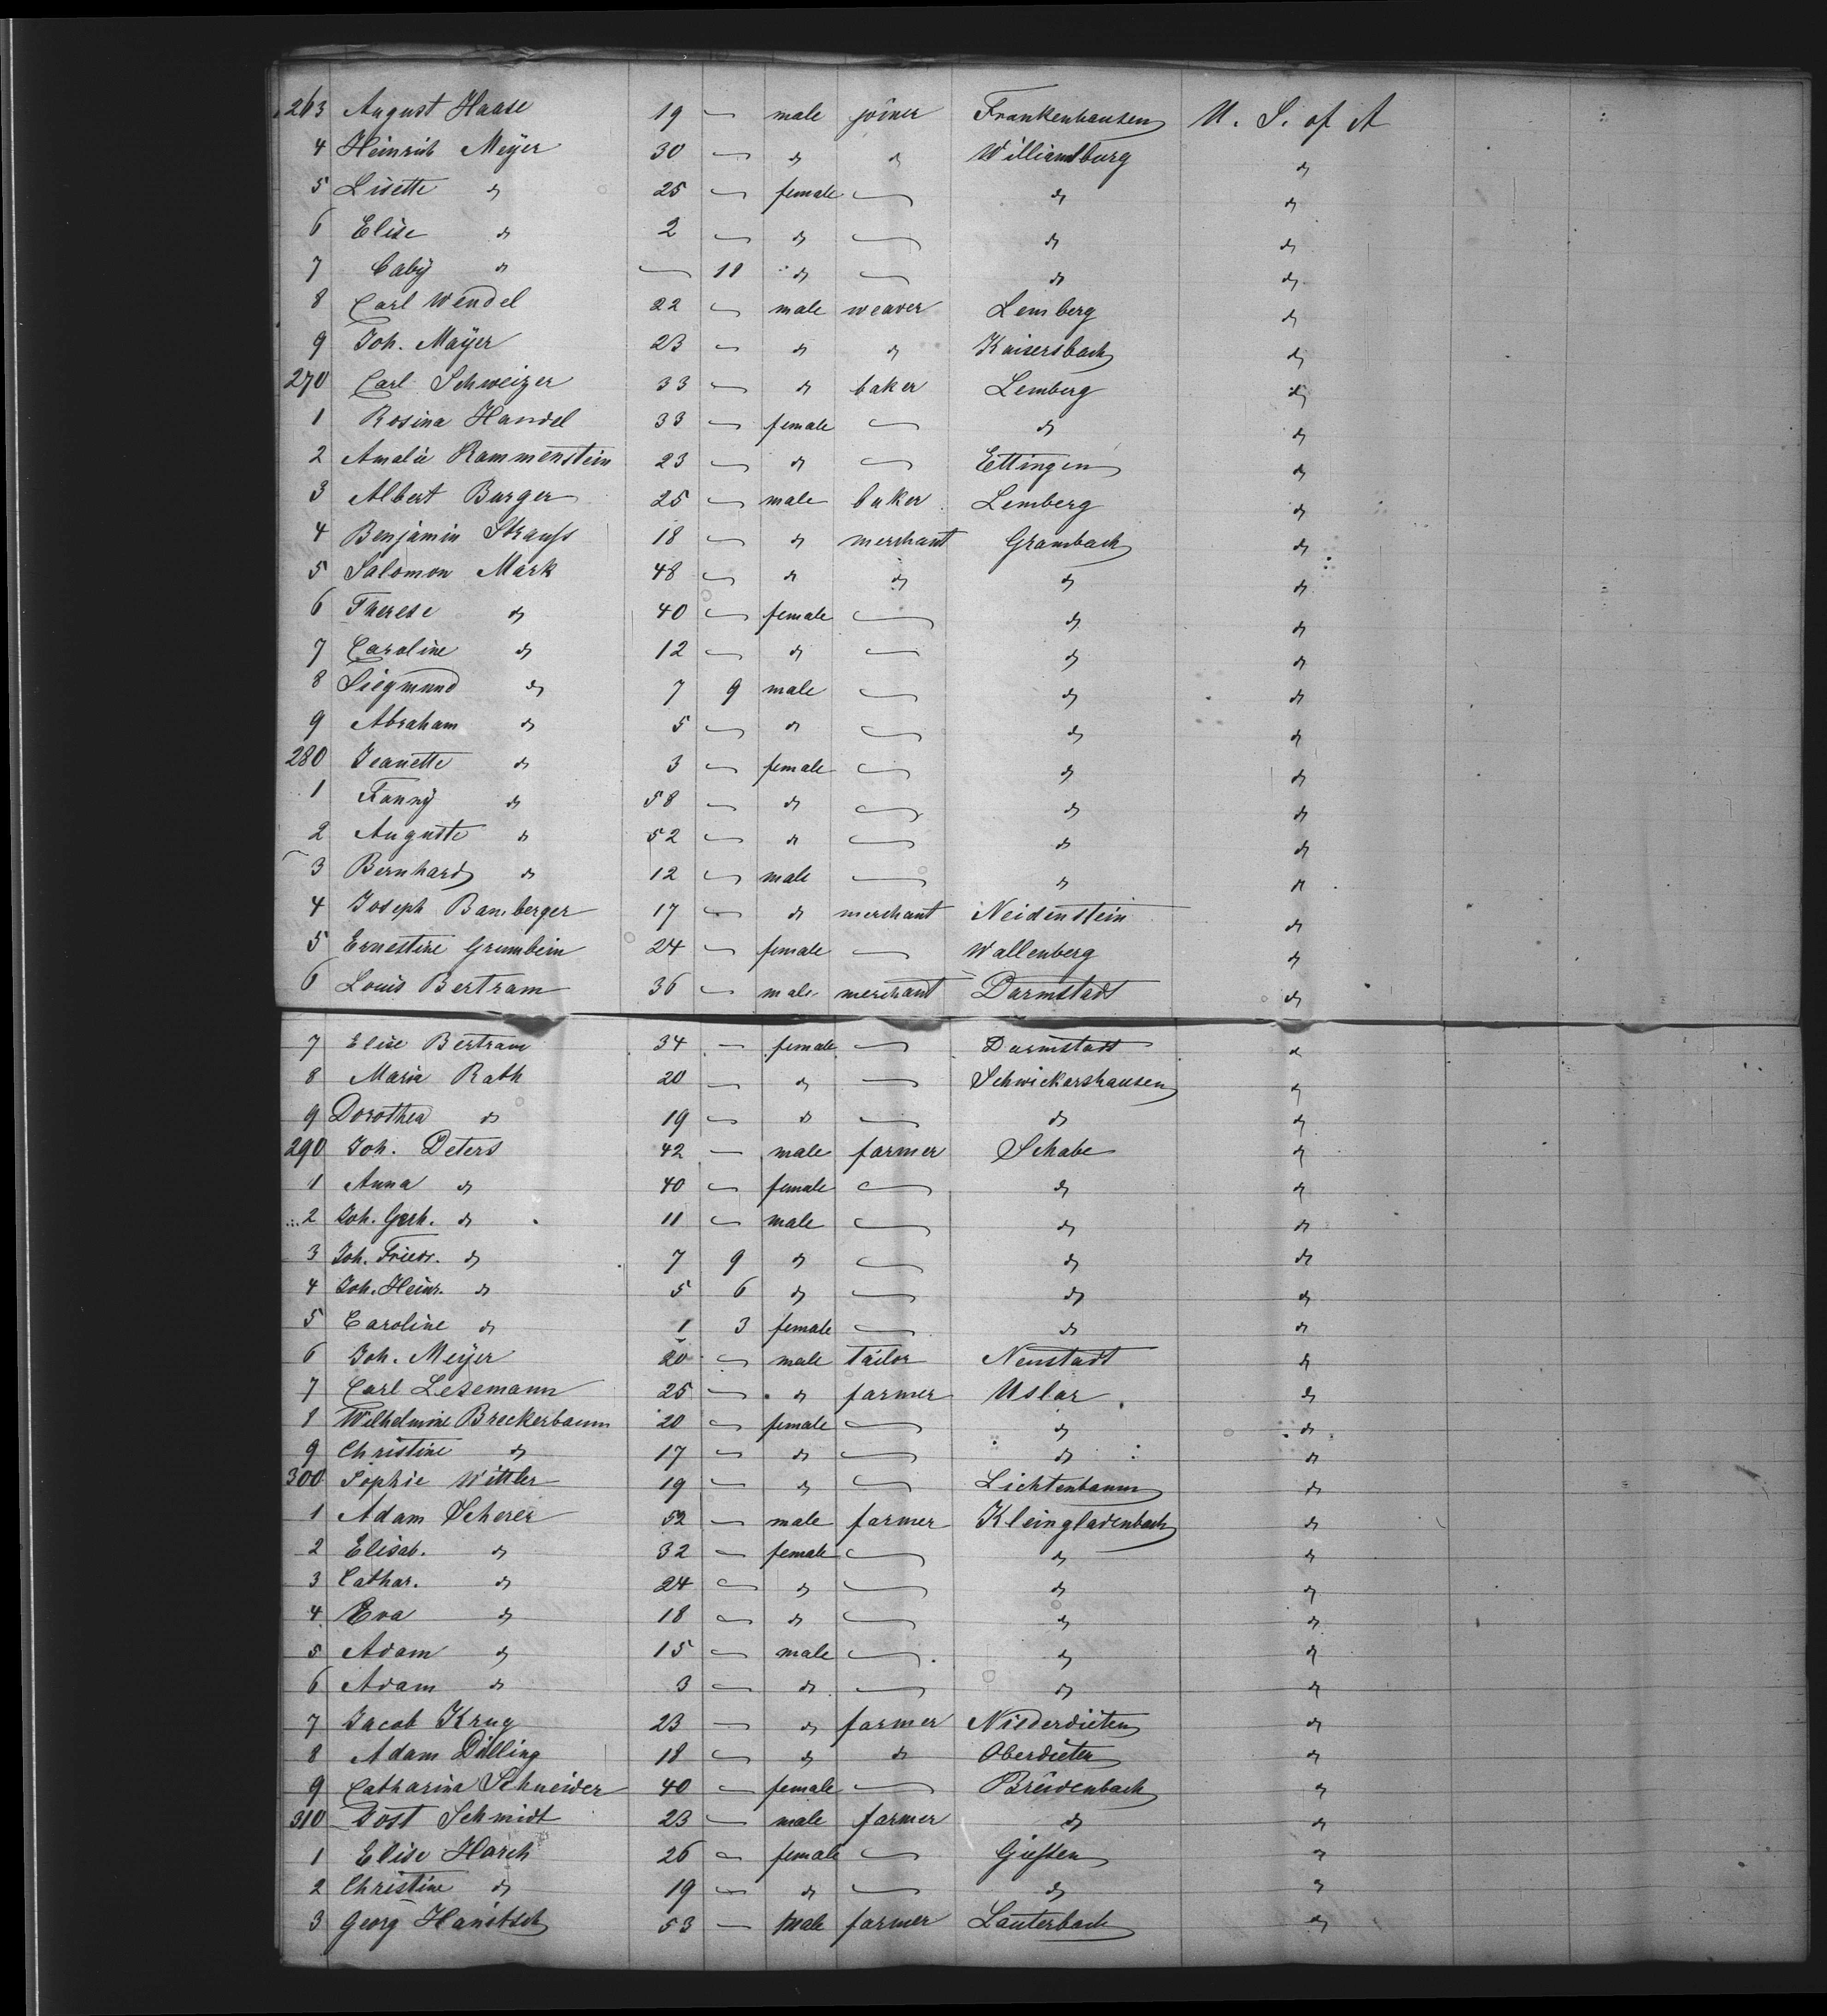 263 August Haase 19 — male joiner Frankenhausen U. S. of A
4 Heinrich Meyer 30 — do do Williamsburg do
5 Lisette do 25 — female — do do
6 Elise do 2 — do — do do
7 baby do — 11 do — do do
8 Carl Wendel 22 — male weaver Lemberg do
9 Joh. Mayer 23 — do do Kaisersbach do
270 Carl Schweizer 33 — do baker Lemberg do
1 Rosina Handel 33 — female — do do
2 Amalie Rammenstein 23 — do — Ettingen do
3 Albert Burger 25 — male baker Lemberg do
4 Benjamin Strauss 18 — do merchant Grambach do
5 Salomon Mark 48 — do do do do
6 Therese do 40 — female — do do
7 Caroline do 12 — do — do do
8 Siegmund do 7 9 male — do do
9 Abraham do 5 — do — do do
280 Jeanette do 3 — female — do do
1 Fanny do 58 — do — do do
2 Auguste do 52 — do — do do
3 Bernhard do 12 — male — do do
4 Joseph Bamberger 17 — do merchant Neidenstein do
5 Ernestine Grumbein 24 — female — Wallenberg do
6 Louis Bertram 36 — male merchant Darmstadt do
7 Elise Bertram 34 — female — Darmstadt do
8 Maria Rath 20 — do — Schwickershausen do
9 Dorothea do 19 — do — do do
290 Joh. Deters 42 — male farmer Schabe do
1 Anna do 40 — female — do do
2 Joh. Gerh. do 11 — male — do do
3 Joh. Friedr. do 7 9 do — do do
4 Joh. Heinr. do 5 6 do — do do
5 Caroline do 1 3 female — do do
6 Joh. Meyer 20 — male tailor Neustadt do
7 Carl Lesemann 25 — do farmer Uslar do
8 Wilhelmine Breckerbaum 20 — female — do do
9 Christine do 17 — do — do do
300 Sophie Wittler 19 — do — Lichtenbaum do
1 Adam Scherer 52 — male farmer Kleingladenbach do
2 Elisab. do 32 — female — do do
3 Cathar. do 24 — do — do do
4 Eva do 18 — do — do do
5 Adam do 15 — male — do do
6 Adam do 3 — do — do do
7 Jacob Krug 23 — do farmer Niederdieten do
8 Adam Dilling 18 — do do Oberdieten do
9 Catharina Schneider 40 — female — Breidenbach do
310 Jost Schmidt 23 — male farmer do do
1 Elise Harch 26 — female — Giessen do
2 Christine do 19 — do — do do
3 Georg Hanitsch 53 — male farmer Lauterbach do